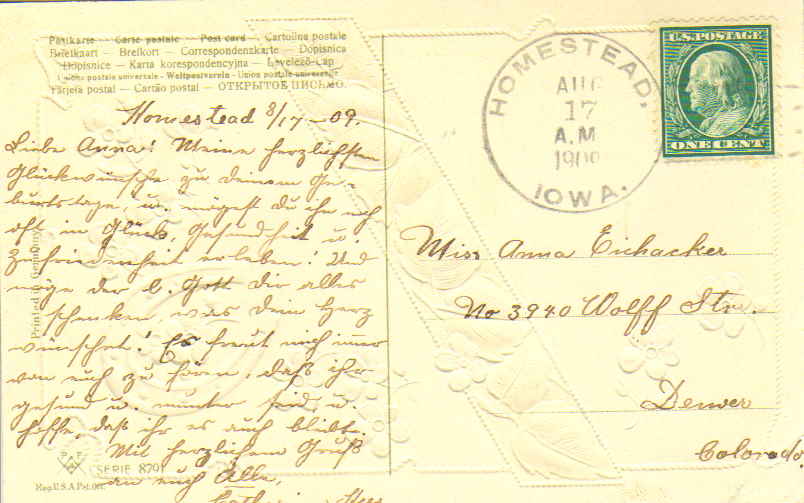 Postkarte — Carte postale — Post card — Cartolina postale
Briefkaart — Brefkort — Correspondenzkarte — Dopisnica
Dopisnice — Karta korespondencyjna — Levelező-Lap
Union postale universelle - Weltpostverein - Union postale universelle
Tarjeta postal — Cartão postal — ОТКРЫТОЕ ПИСЬМО.
Homestead 8/17 - 09.
Liebe Anna! Meine herzlichsten
Glückwünsche zu deinem Ge-
burtstage, u. mögest du ihn noch
oft in Glück, Gesundheit u.
Zufriedenheit erleben! Und
möge der l. Gott dir alles
schenken, was dein Herz
wünschet! Es freut mich immer
von euch zu hören, daß ihr
gesund u. munter seid, u.
hoffe, daß ihr es auch bleibt.
Mit herzlichem Gruß
an euch Alle,
Printed in Germany
SERIE 8791
Reg. U.S.A Pat. Off.
HOMESTEAD,
AUG
17
A.M
IOWA.
U.S. POSTAGE
ONE CENT
Miss Anna Eichacker
No 3940 Wolff Str.
Denver
Colorado.